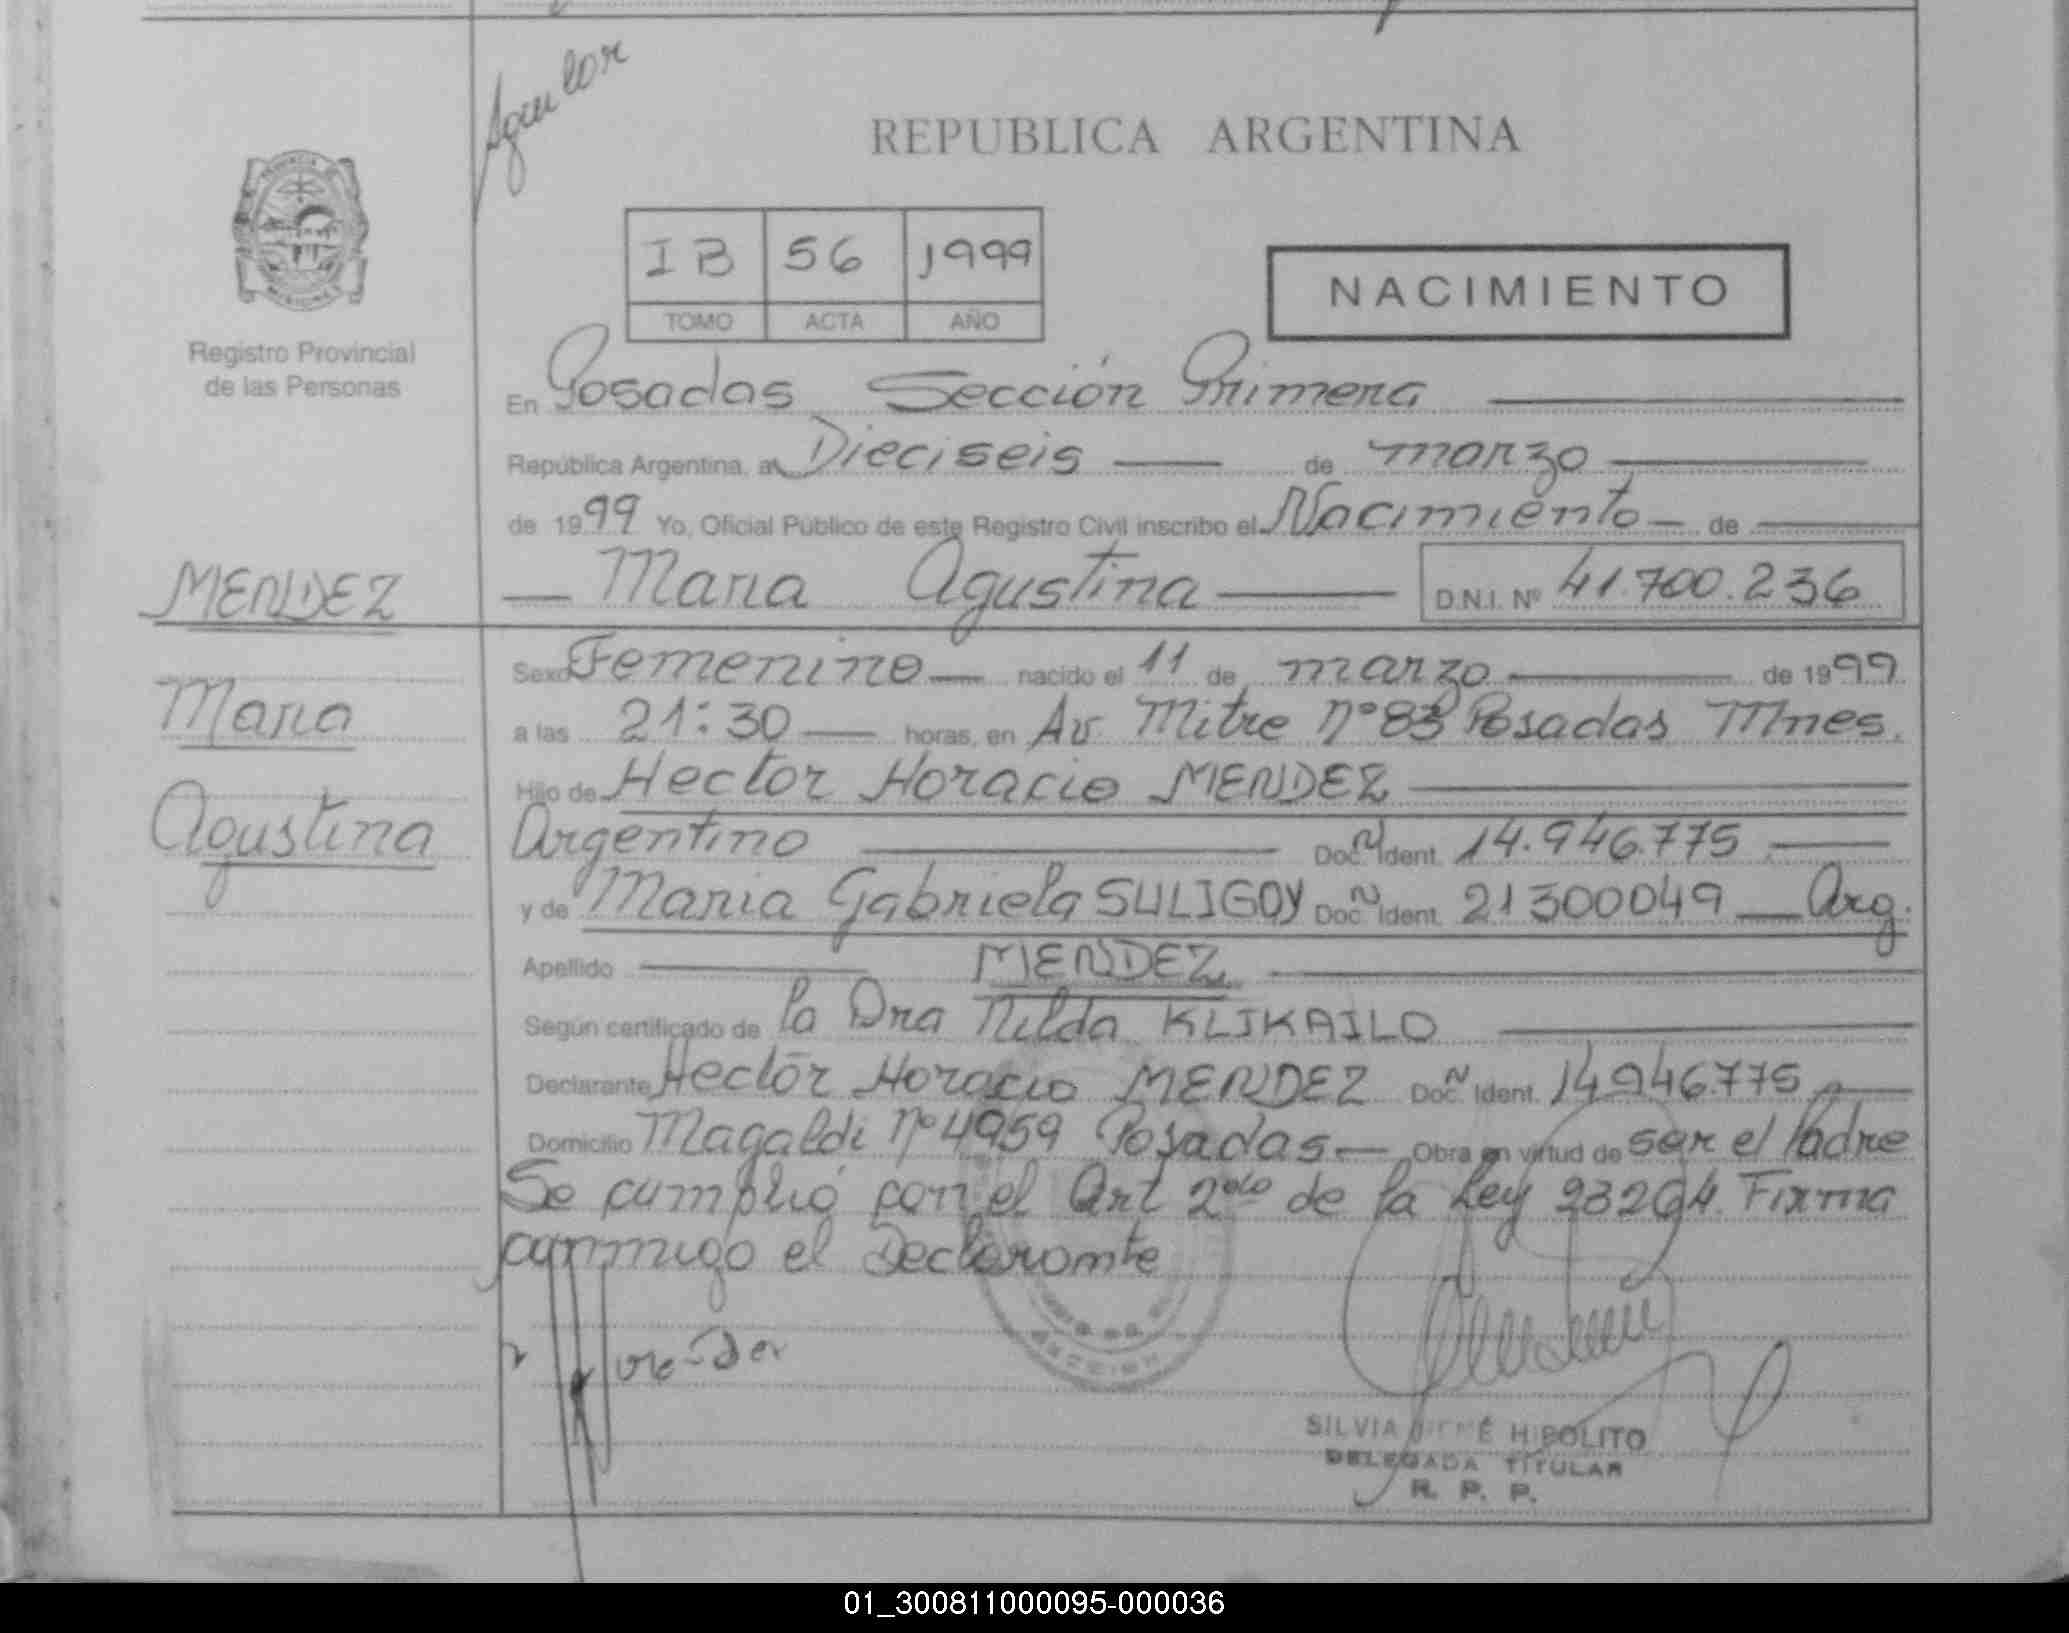 Aguilar
REPUBLICA ARGENTINA
IB 56 1999
TOMO ACTA AÑO
NACIMIENTO
Registro Provincial
de las Personas
En Posadas Sección Primera
República Argentina, a Dieciseis de marzo
de 1999 Yo, Oficial Público de este Registro Civil inscribo el Nacimiento de
Maria Agustina D.N.I. Nº 41.700.236
MENDEZ
Maria
Agustina
Sexo Femenino nacido el 11 de marzo de 1999
a las 21:30 horas, en Av Mitre Nº 83 Posadas Mnes.
Hijo de Hector Horacio MENDEZ
Argentino Doc. Ident. 14.946.775
y de Maria Gabriela SULIGOY Doc. Ident. 21300049 Arg.
Apellido MENDEZ
Según certificado de la Dra Nilda KLIKAILO
Declarante Hector Horacio MENDEZ Doc. Ident. 14946.775
Domicilio Magaldi Nº 4959 Posadas Obra en virtud de ser el Padre
Se cumplió con el Art 2do de la Ley 23264 Firma
conmigo el Declarante
SILVIA HIPOLITO
DELEGADA TITULAR
R. P. P.
01_300811000095-000036